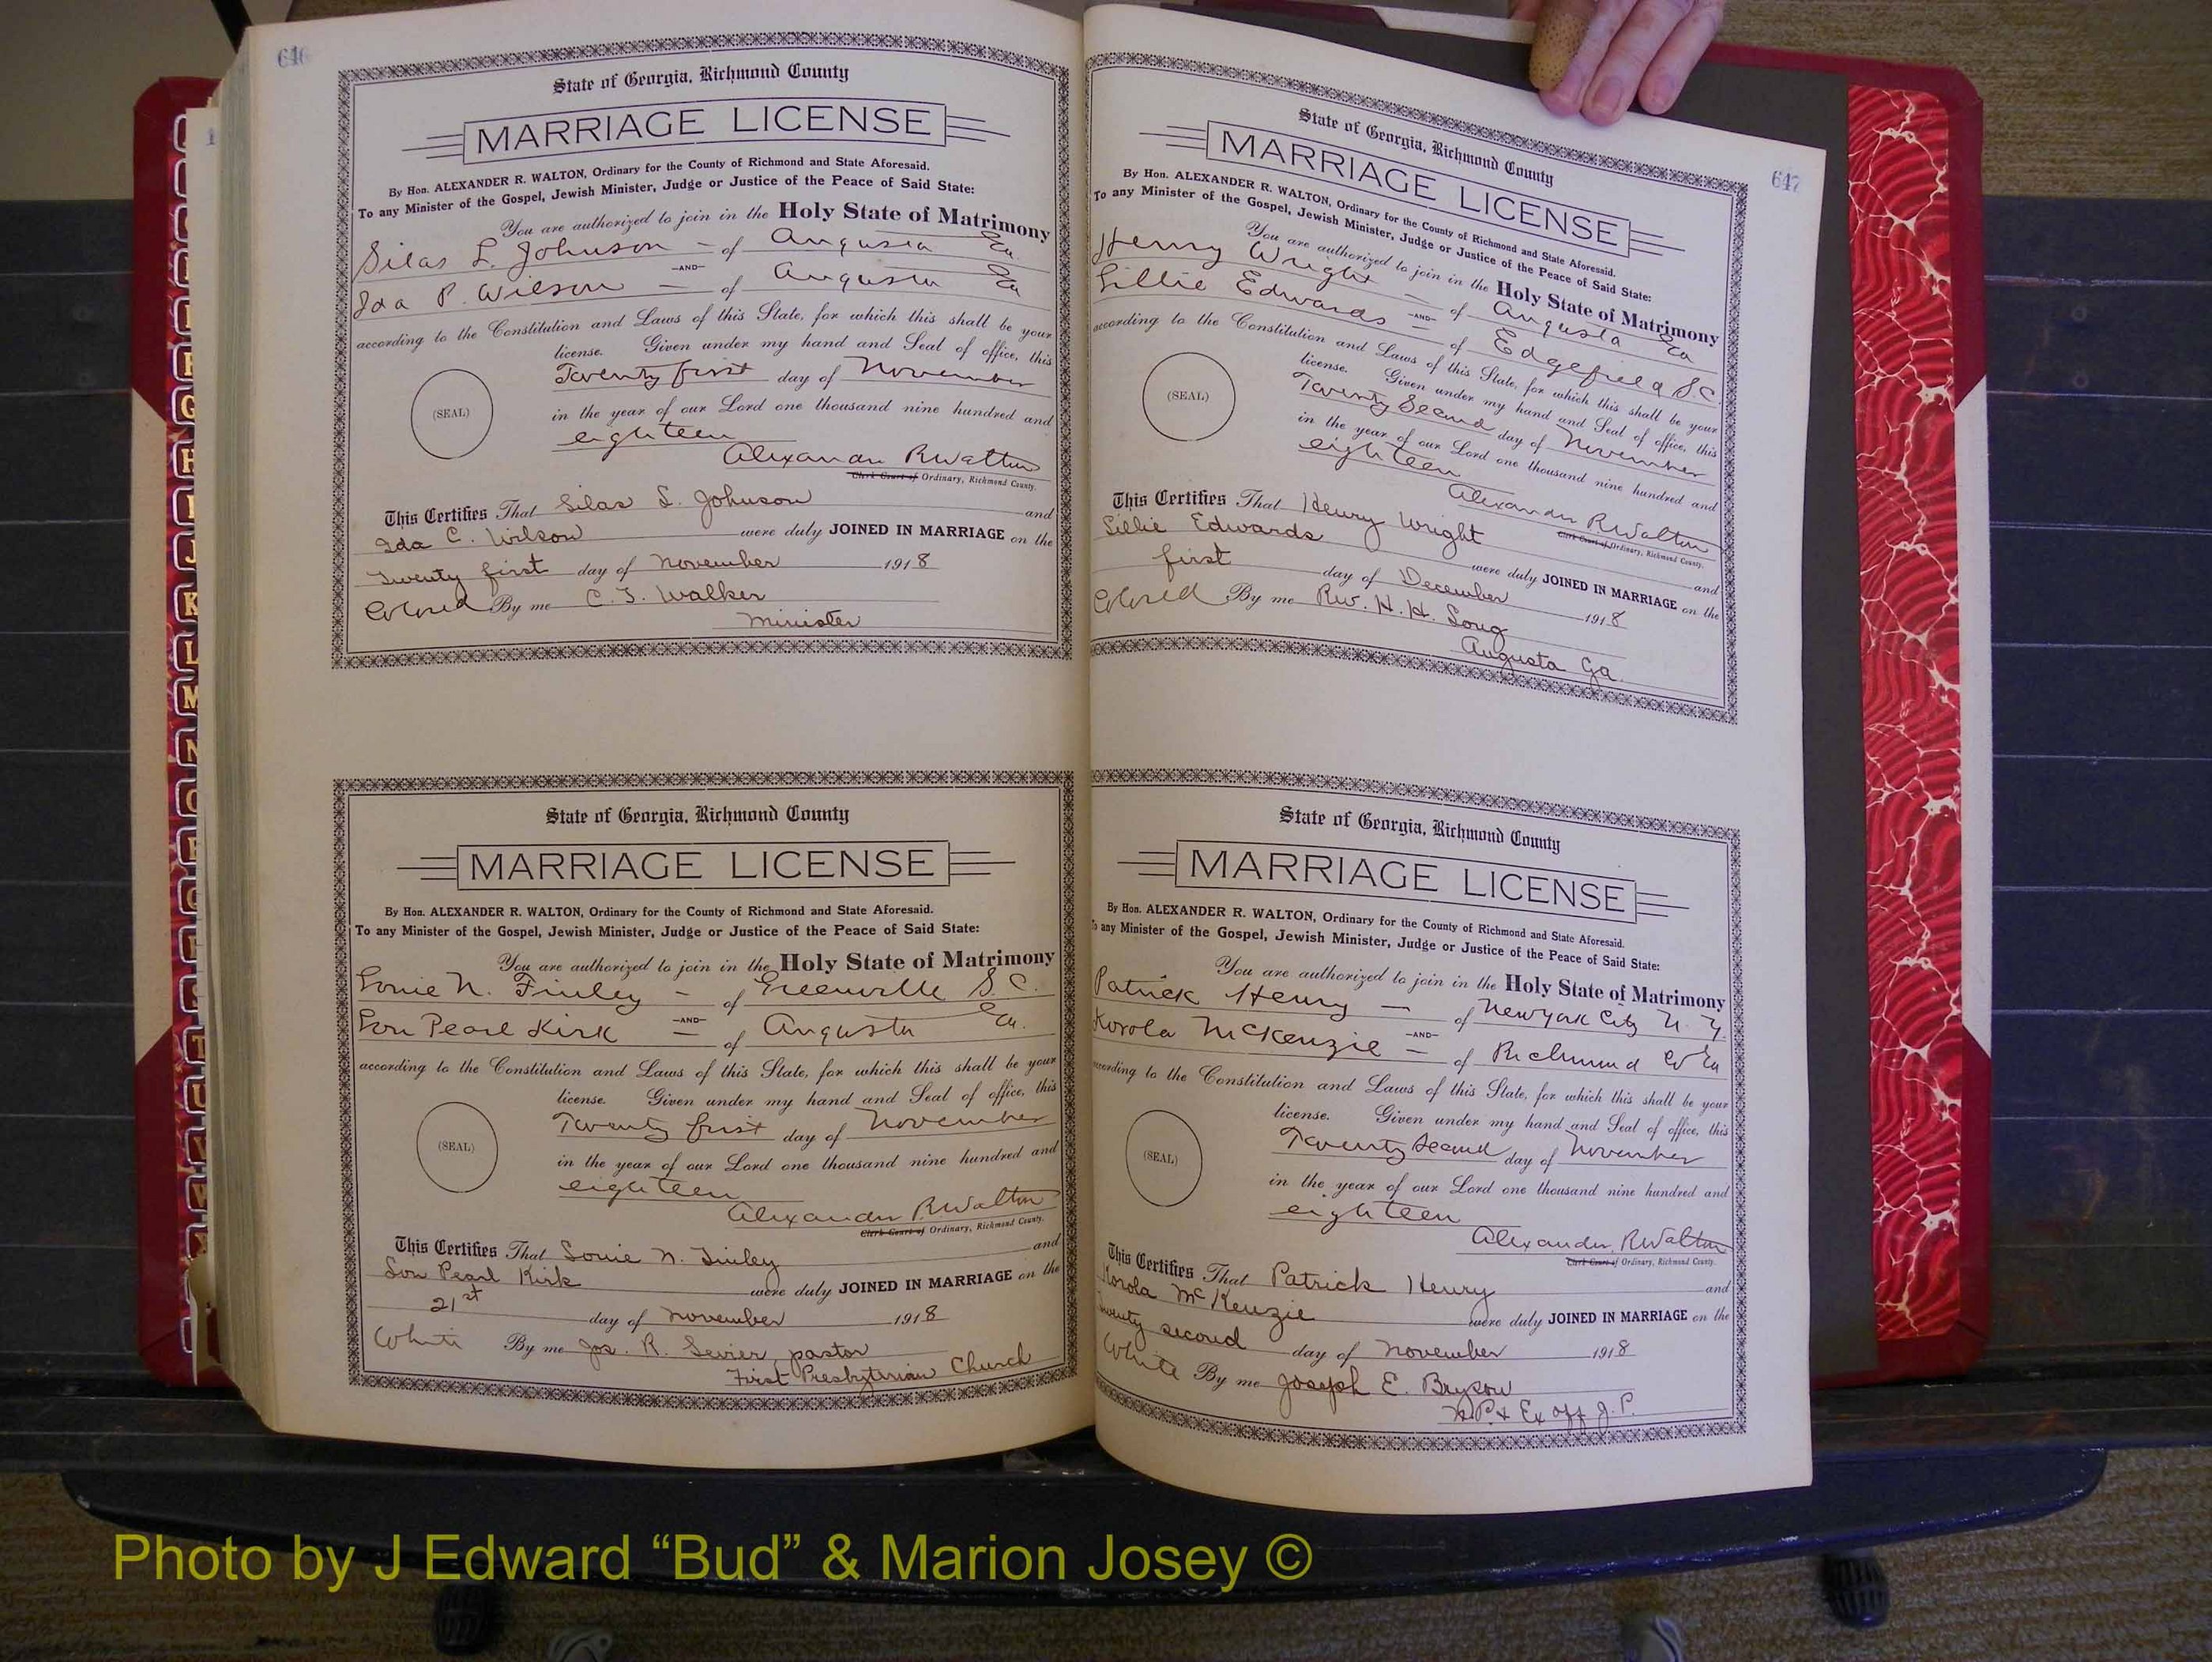 646
State of Georgia, Richmond County
MARRIAGE LICENSE
By Hon. ALEXANDER R. WALTON, Ordinary for the County of Richmond and State Aforesaid.
To any Minister of the Gospel, Jewish Minister, Judge or Justice of the Peace of Said State:
You are authorized to join in the Holy State of Matrimony
Silas L. Johnson - of Augusta Ga
-AND-
Ida P. Wilson - of Augusta Ga
according to the Constitution and Laws of this State, for which this shall be your
license. Given under my hand and Seal of office, this
Twenty first day of November
(SEAL)
in the year of our Lord one thousand nine hundred and
eighteen
Alexander R Walton
Clerk Court of Ordinary, Richmond County.
This Certifies That Silas L. Johnson and
Ida C. Wilson were duly JOINED IN MARRIAGE on the
Twenty first day of November 1918
Colored By me C. T. Walker
Minister
State of Georgia, Richmond County
MARRIAGE LICENSE
By Hon. ALEXANDER R. WALTON, Ordinary for the County of Richmond and State Aforesaid.
To any Minister of the Gospel, Jewish Minister, Judge or Justice of the Peace of Said State:
You are authorized to join in the Holy State of Matrimony
Louie N. Finley - of Greenville S.C.
-AND-
Lou Pearl Kirk - of Augusta Ga.
according to the Constitution and Laws of this State, for which this shall be your
license. Given under my hand and Seal of office, this
Twenty first day of November
(SEAL)
in the year of our Lord one thousand nine hundred and
eighteen
Alexander R Walton
Clerk Court of Ordinary, Richmond County.
This Certifies That Louie N. Finley and
Lou Pearl Kirk were duly JOINED IN MARRIAGE on the
21st day of November 1918
White By me Jos. R. Sevier, pastor
First Presbyterian Church
647
State of Georgia, Richmond County
MARRIAGE LICENSE
By Hon. ALEXANDER R. WALTON, Ordinary for the County of Richmond and State Aforesaid.
To any Minister of the Gospel, Jewish Minister, Judge or Justice of the Peace of Said State:
You are authorized to join in the Holy State of Matrimony
Henry Wright - of Augusta Ga
-AND-
Lillie Edwards - of Edgefield S.C.
according to the Constitution and Laws of this State, for which this shall be your
license. Given under my hand and Seal of office, this
Twenty Second day of November
(SEAL)
in the year of our Lord one thousand nine hundred and
eighteen
Alexander R Walton
Clerk Court of Ordinary, Richmond County.
This Certifies That Henry Wright and
Lillie Edwards were duly JOINED IN MARRIAGE on the
first day of December 1918
Colored By me Rev. H. H. Long
Augusta Ga.
State of Georgia, Richmond County
MARRIAGE LICENSE
By Hon. ALEXANDER R. WALTON, Ordinary for the County of Richmond and State Aforesaid.
To any Minister of the Gospel, Jewish Minister, Judge or Justice of the Peace of Said State:
You are authorized to join in the Holy State of Matrimony
Patrick Henry - of New York City N.Y.
-AND-
Korola McKenzie - of Richmond Co Ga
according to the Constitution and Laws of this State, for which this shall be your
license. Given under my hand and Seal of office, this
Twenty Second day of November
(SEAL)
in the year of our Lord one thousand nine hundred and
eighteen
Alexander R Walton
Clerk Court of Ordinary, Richmond County.
This Certifies That Patrick Henry and
Korola McKenzie were duly JOINED IN MARRIAGE on the
twenty second day of November 1918
White By me Joseph E. Bryson
N.P. & Ex off J.P.
Photo by J Edward “Bud” & Marion Josey ©